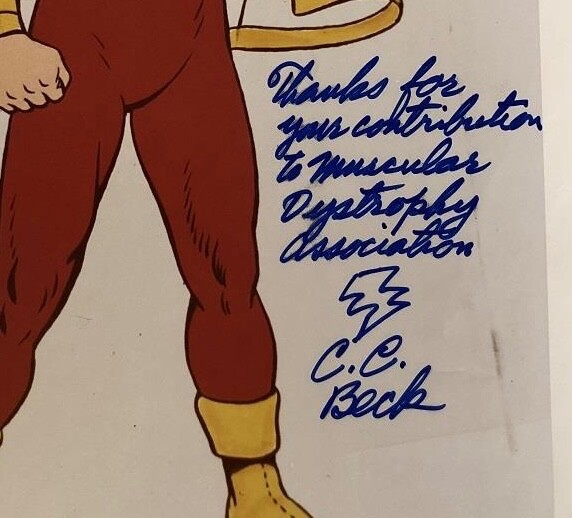 Thanks for
your contribution
to Muscular
Dystrophy
Association
C.C.
Beck